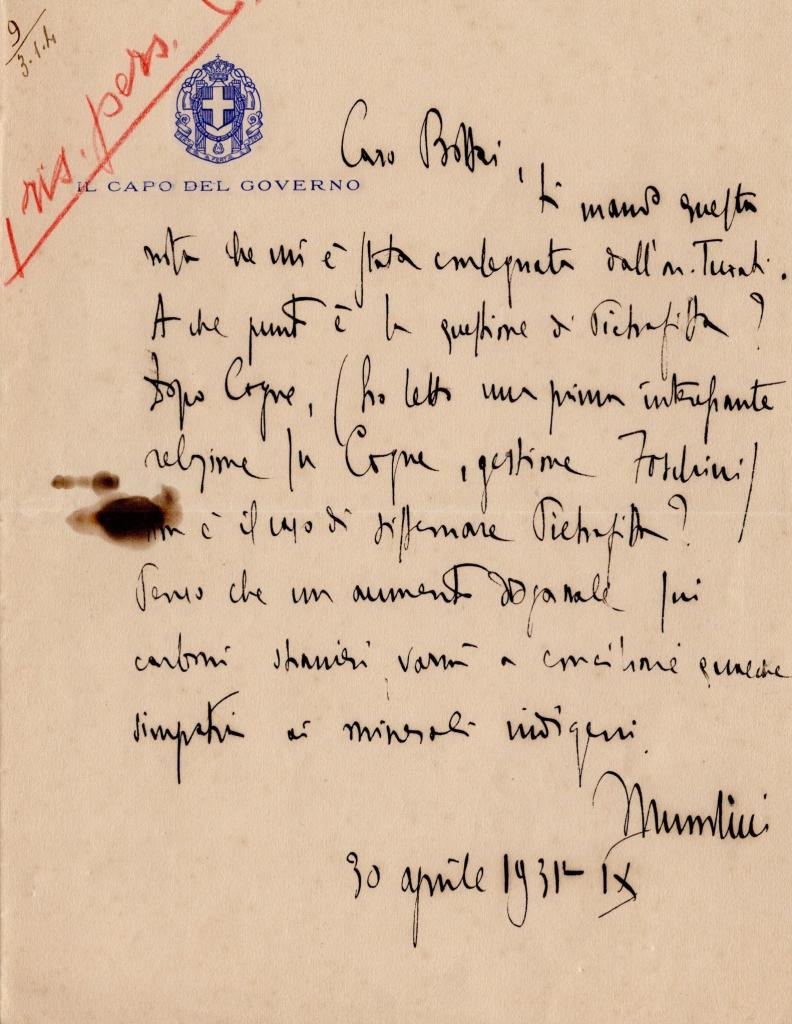 9
3.1.4
ris. pers.
IL CAPO DEL GOVERNO
Caro Bottai,
ti mando questa
nota che mi è stata consegnata dall'on. Turati.
A che punto è la questione di Pietrafitta?
Dopo Cogne, (ho letto una prima interessante
relazione su Cogne, gestione Foschini)
non è il caso di sistemare Pietrafitta?
Penso che un aumento doganale sui
carboni stranieri varrà a conciliare qualche
simpatia ai minerali indigeni.
Mussolini
30 aprile 1931 - IX